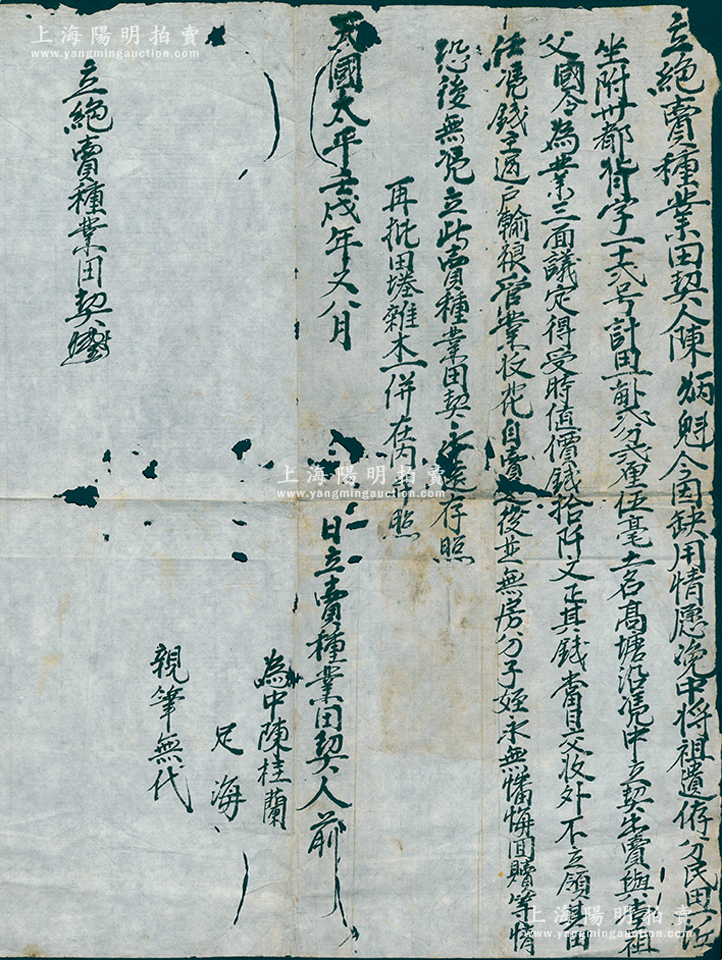 立絕賣種業田契人陳炳魁今因缺用情愿浼中将祖遺存分民田一坵
坐附廿都皆字一十弍号計田一畝弍分弍厘伍毫土名髙塘沿憑中立契出賣與堂祖
父國令為業三面議定得受時值價錢拾阡文正其錢當日交收外不立領其田
任憑錢主過戶輸粮管業收花自賣之後並無房分子姪永無憣悔囬贖等情
恐後無凴立此賣種業田契永遠存照
再批田墈雜木一併在內 照
天國太平壬戌年又八月 日立賣種業田契人 前
為中陳桂蘭
足海
親筆無代
立絕賣種業田契
上海陽明拍賣
www.yangmingauction.com
上海陽明拍賣
www.yangmingauction.com
上海陽明拍賣
www.yangmingauction.com